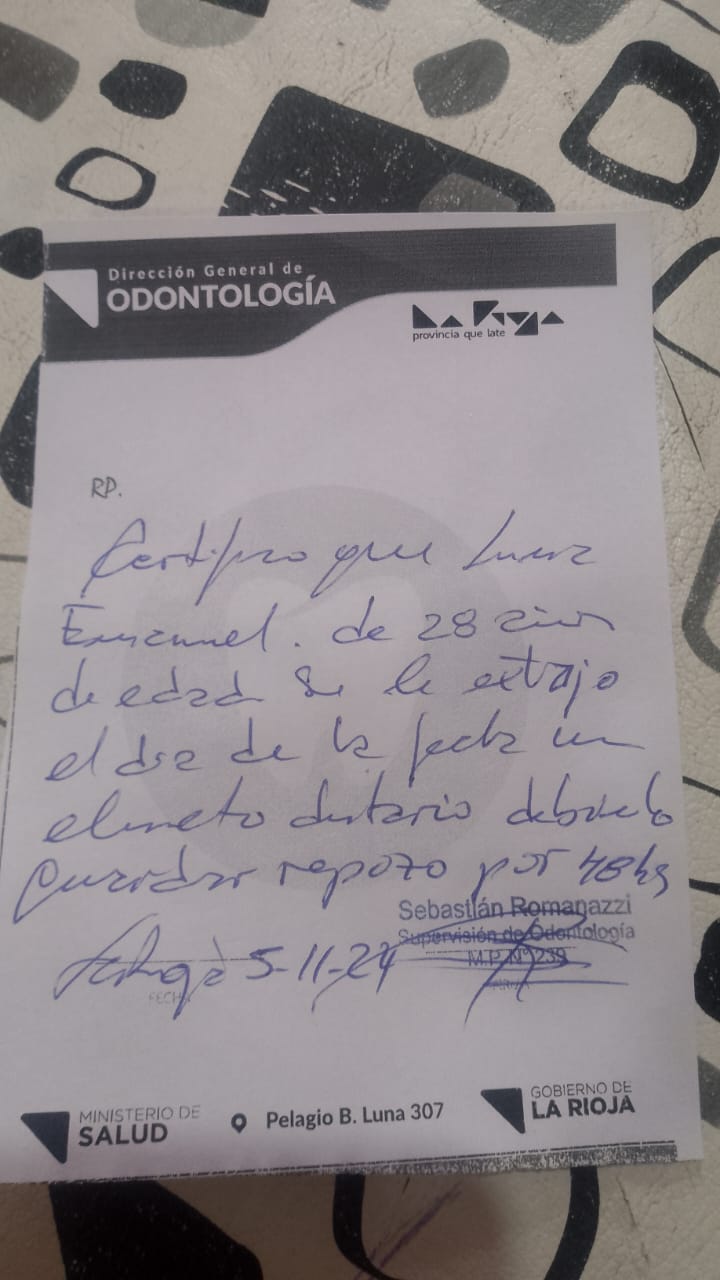 Dirección General de
ODONTOLOGÍA
La Rioja
provincia que late
RP.
Certifico que
Emanuel. de 28 años
de edad se le extrajo
el día de la fecha un
elemeto dentario debiendo
Guardar repozo por 48hs
Sebastián Romanazzi
Supervisión de Odontología
M.P. Nº 239
5-11-24
FECHA
FIRMA
MINISTERIO DE
SALUD
Pelagio B. Luna 307
GOBIERNO DE
LA RIOJA